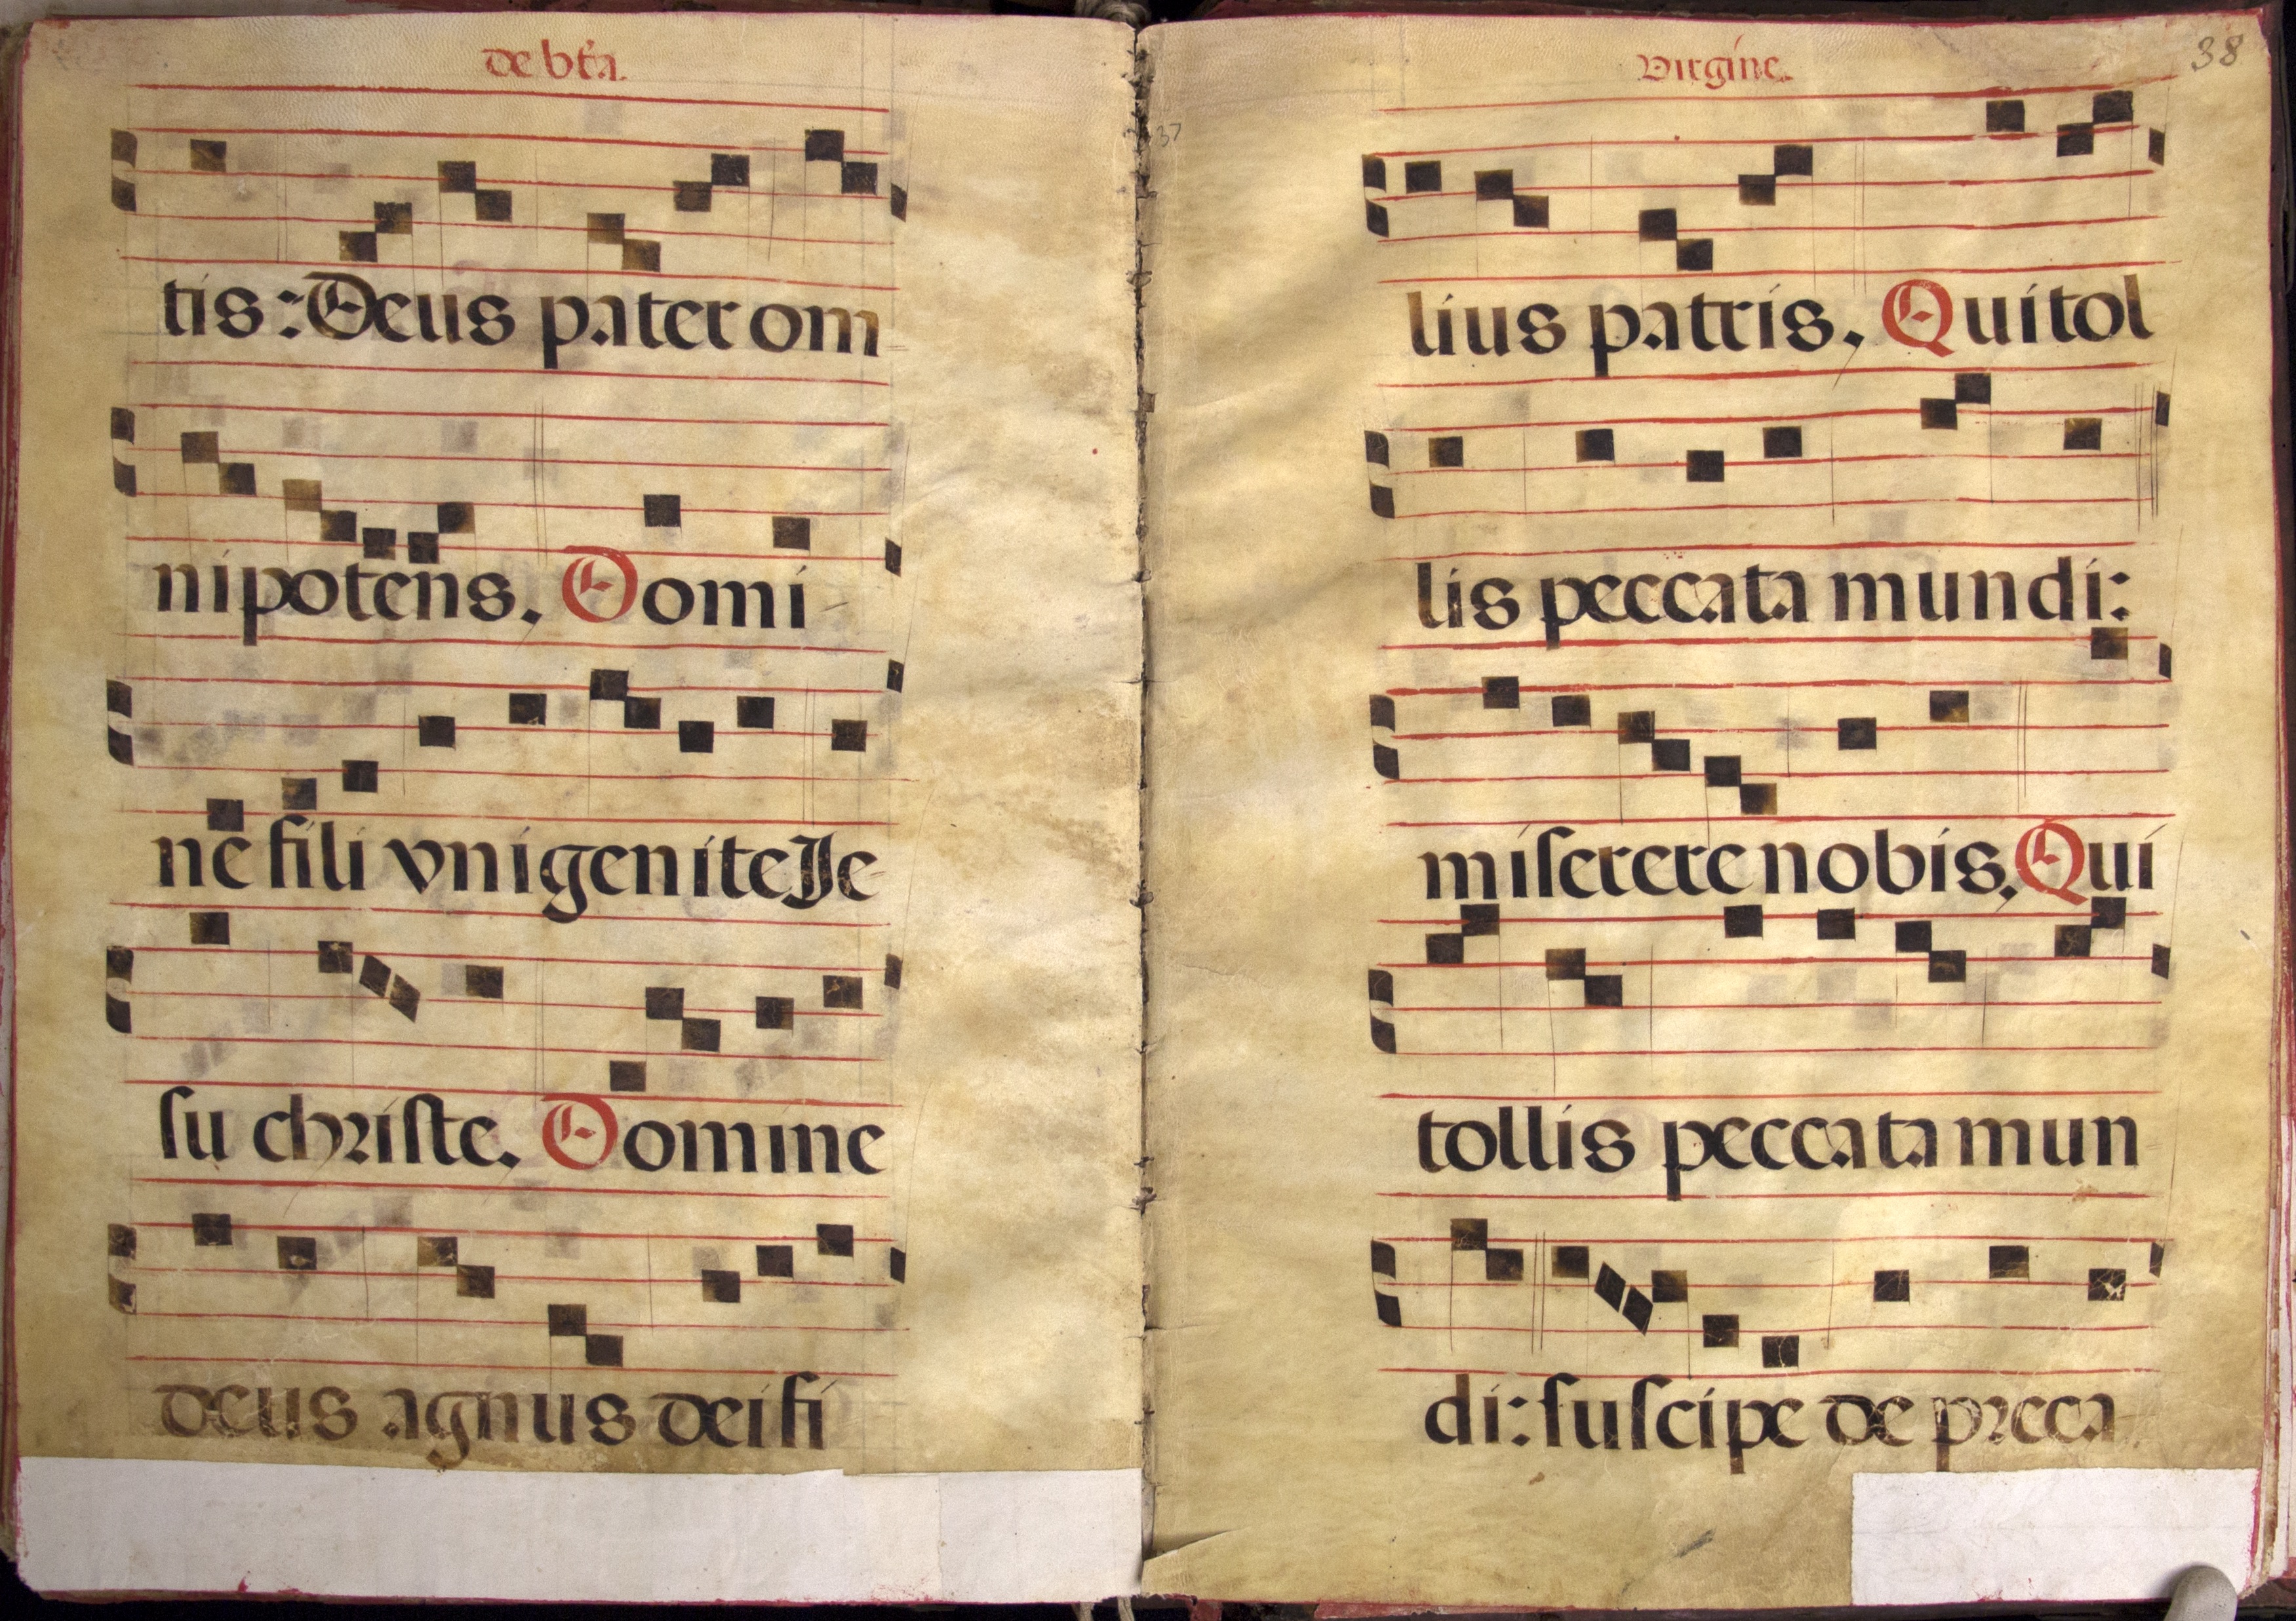 de bt̃a.
tis: Deus pater om
nipotens. Domi
ne fili vnigenite Je
su christe. Domine
deus agnus dei fi
37
Virgine.
38
lius patris. Qui tol
lis peccata mundi:
miserere nobis. Qui
tollis peccata mun
di: suscipe depreca